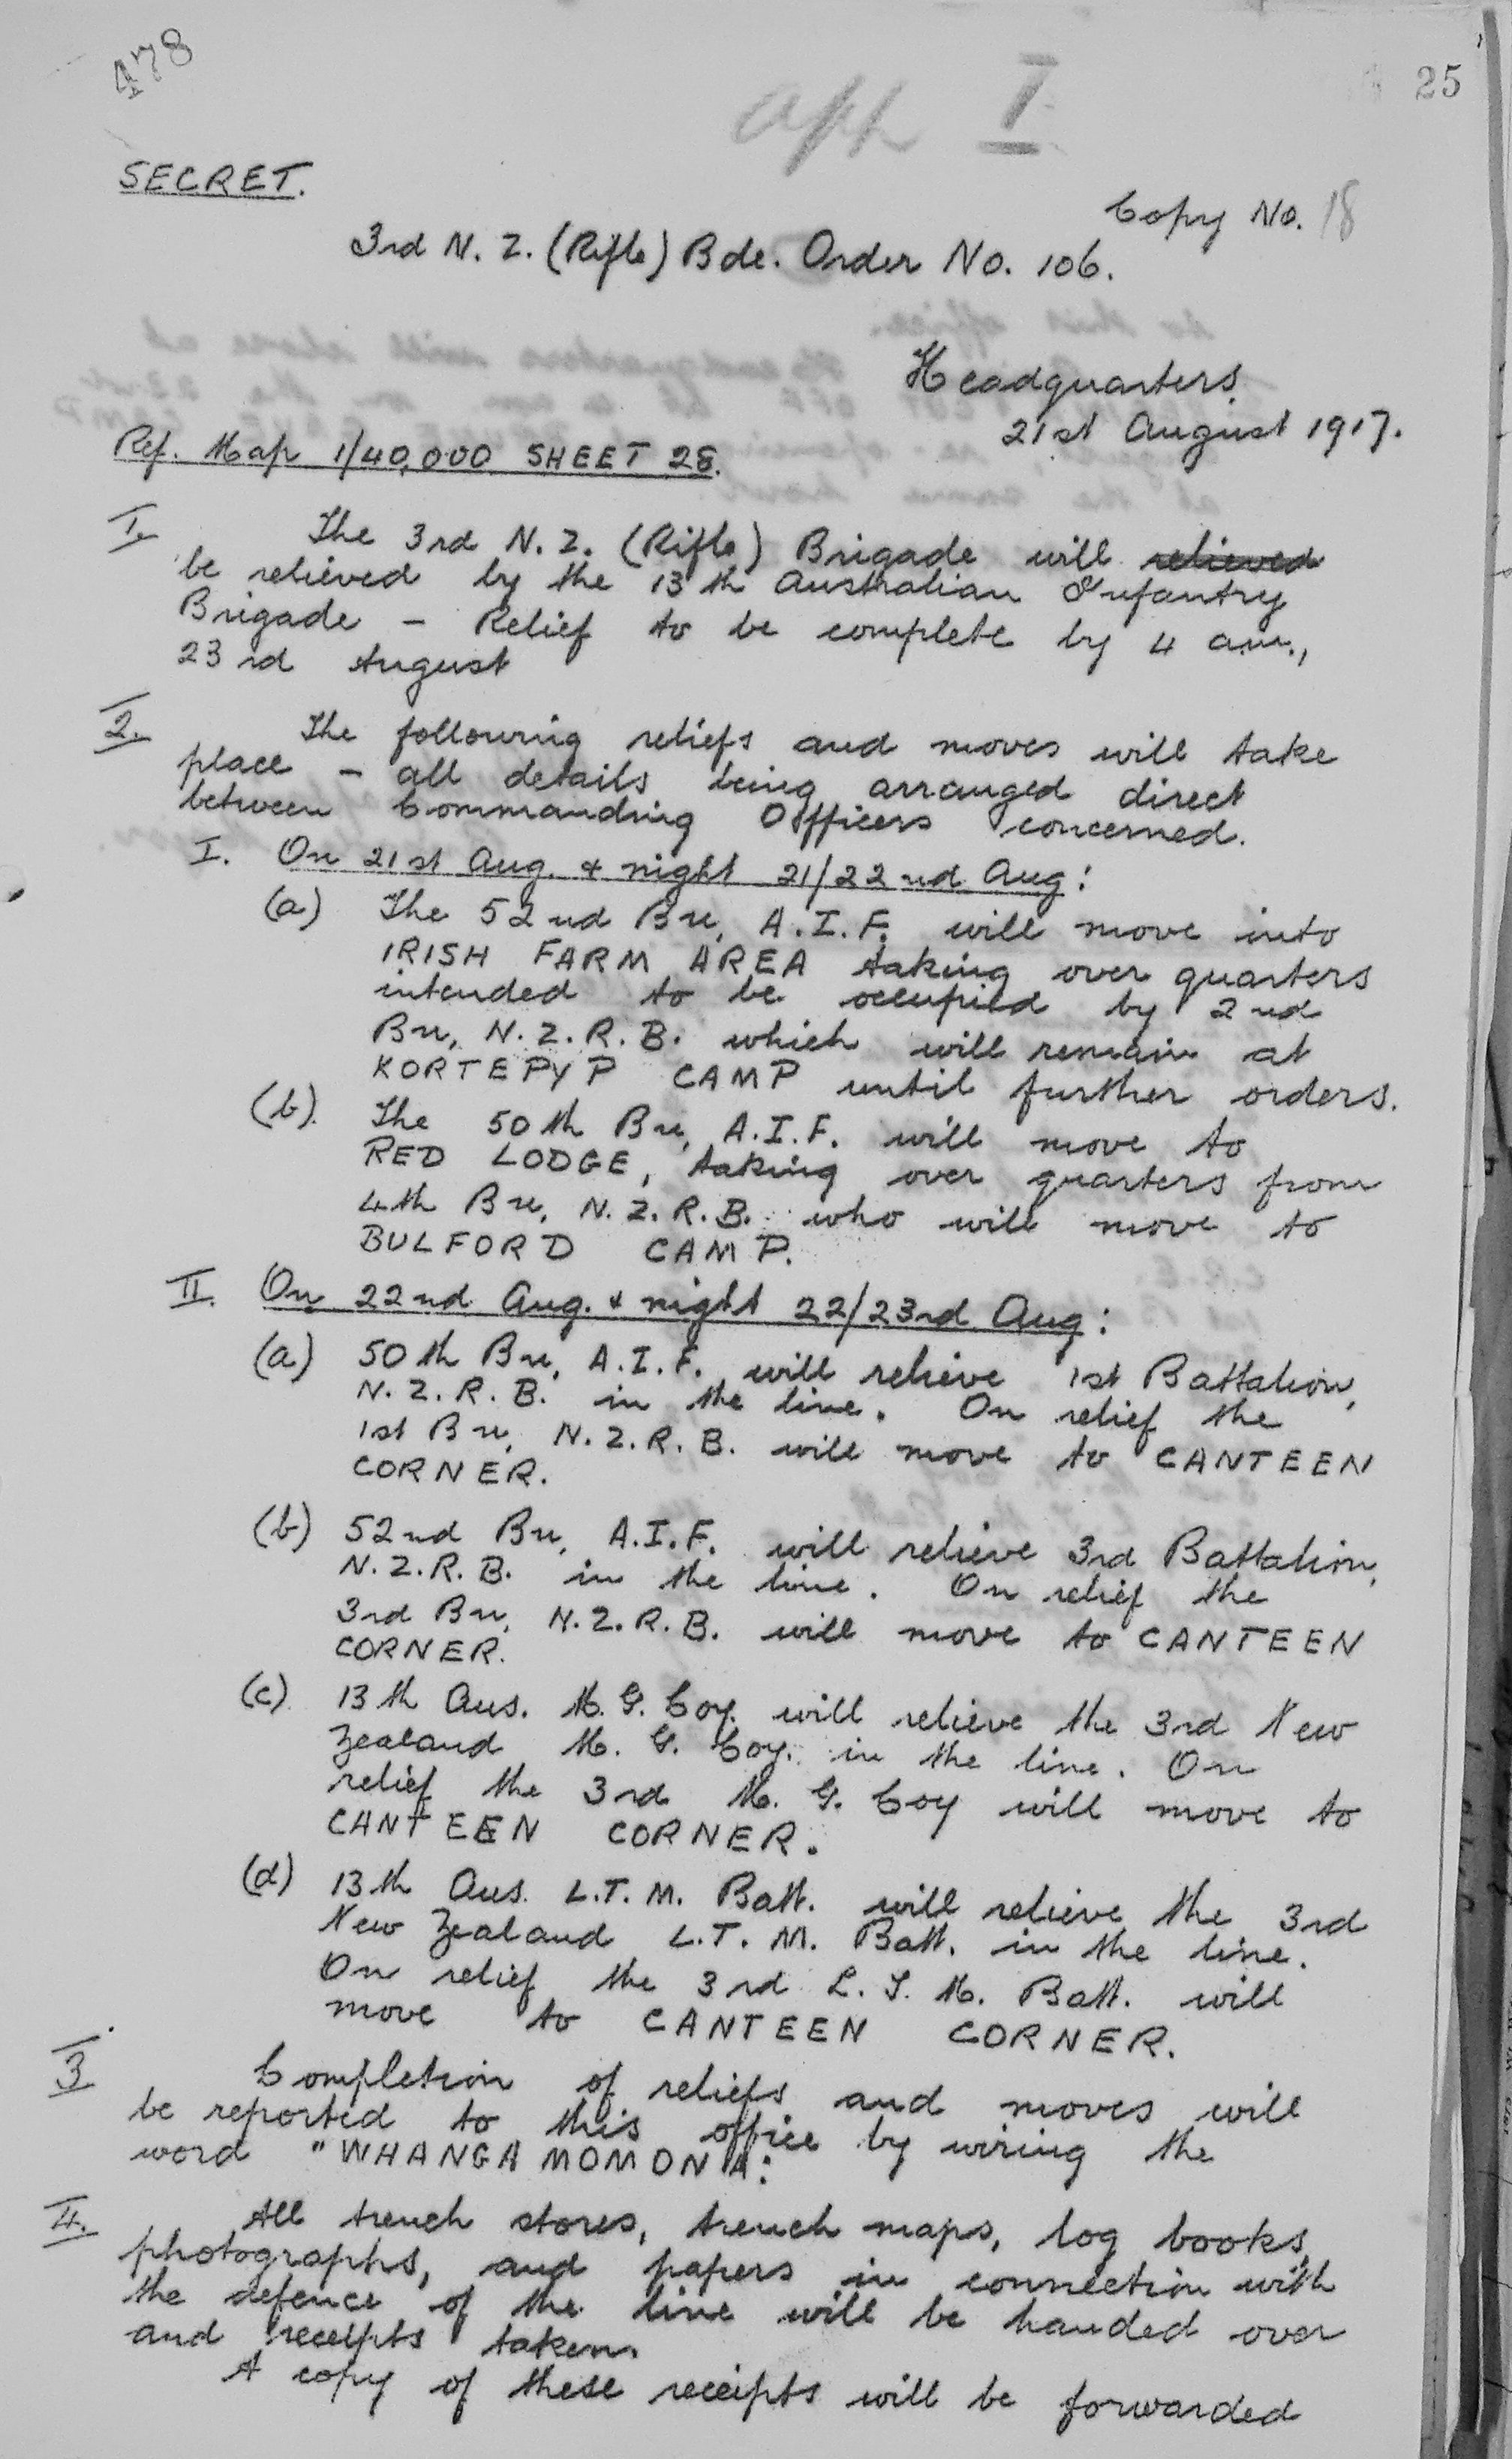 478
25
app I
SECRET.
Copy No. 18
3rd N. Z. (Rifle) Bde. Order No. 106.
Headquarters
21st August 1917.
Ref. Map 1/40,000 SHEET 28.
1. The 3rd N. Z. (Rifle) Brigade will relieved
be relieved by the 13th Australian Infantry
Brigade - Relief to be complete by 4 a.m.,
23rd August
2. The following reliefs and moves will take
place - all details being arranged direct
between Commanding Officers concerned.
I. On 21st Aug. & night 21/22nd Aug:
(a) The 52nd Bn, A.I.F. will move into
IRISH FARM AREA taking over quarters
intended to be occupied by 2nd
Bn, N.Z.R.B. which will remain at
KORTEPYP CAMP until further orders.
(b). The 50th Bn, A.I.F. will move to
RED LODGE, taking over quarters from
4th Bn, N.Z.R.B. who will move to
BULFORD CAMP.
II. On 22nd Aug. & night 22/23rd Aug:
(a) 50th Bn, A.I.F. will relieve 1st Battalion,
N.Z.R.B. in the line. On relief the
1st Bn, N.Z.R.B. will move to CANTEEN
CORNER.
(b) 52nd Bn, A.I.F. will relieve 3rd Battalion,
N.Z.R.B. in the line. On relief the
3rd Bn, N.Z.R.B. will move to CANTEEN
CORNER.
(c) 13th Aus. M.G. Coy. will relieve the 3rd New
Zealand M.G. Coy. in the line. On
relief the 3rd M.G. Coy will move to
CANTEEN CORNER.
(d) 13th Aus. L.T.M. Batt. will relieve the 3rd
New Zealand L.T.M. Batt. in the line.
On relief the 3rd L.T.M. Batt. will
move to CANTEEN CORNER.
3 Completion of reliefs and moves will
be reported to this office by wiring the
word "WHANGAMOMONA".
4. All trench stores, trench maps, log books,
photographs, and papers in connection with
the defence of the line will be handed over
and receipts taken.
A copy of these receipts will be forwarded